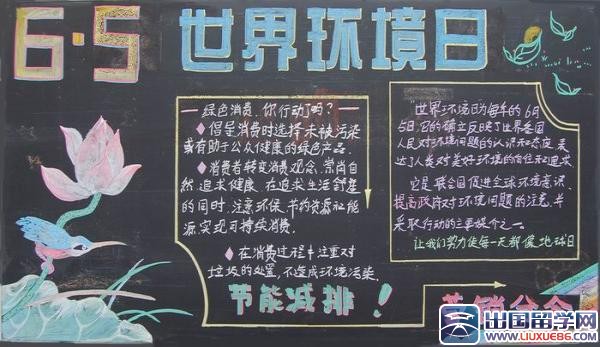 6·5 世界环境日
绿色消费,你行动了吗?
◆倡呈消费时选择未被污染
或有助于公众健康的绿色产品
◆消费者转变消费观念,崇尚自
然、追求健康,在追求生活舒适
的同时,注意环保,节约资源和能
源,实现可持续消费.
◆在消费过程中注重对
垃圾的处置,不造成环境污染.
节能减排!
"世界环境日为每年的6月
5日,它的确立反映了世界各国
人民对环境问题的认识和态度,表
达了人类对美好环境的向往和追求
它是联合国促进全球环境意识、
提高政府对环境问题的注意并
采取行动的主要媒介之一.
让我们努力使每一天都像地球日
营销分会
出国留学网
WWW.LIUXUE86.COM